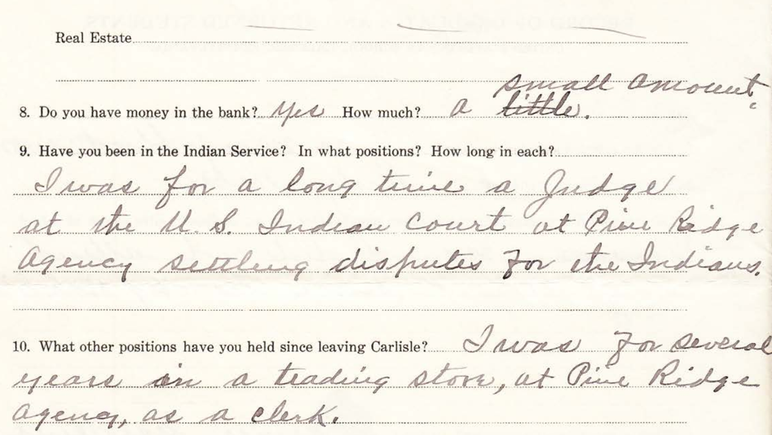 Real Estate
small amount
8. Do you have money in the bank? Yes How much? a little.
9. Have you been in the Indian Service? In what positions? How long in each?
I was for a long time a Judge
at the U. S. Indian Court at Pine Ridge
Agency settling disputes for the Indians.
10. What other positions have you held since leaving Carlisle? I was for several
years in a trading store, at Pine Ridge
Agency, as a clerk.